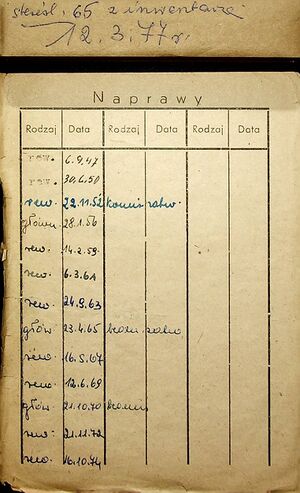 65 z inwentarza
12.3.77r.
Naprawy
Rodzaj Data Rodzaj Data Rodzaj Data
rew. 6.9.47
rew. 30.6.50
rew. 29.11.52
główn 28.1.56
rew. 14.2.59.
rew. 6.3.61
rew. 24.9.63
głów 23.4.65
rew. 16.5.67
rew. 12.6.69
głów. 21.10.70 komis
rew. 21.11.72
rew. 16.10.74